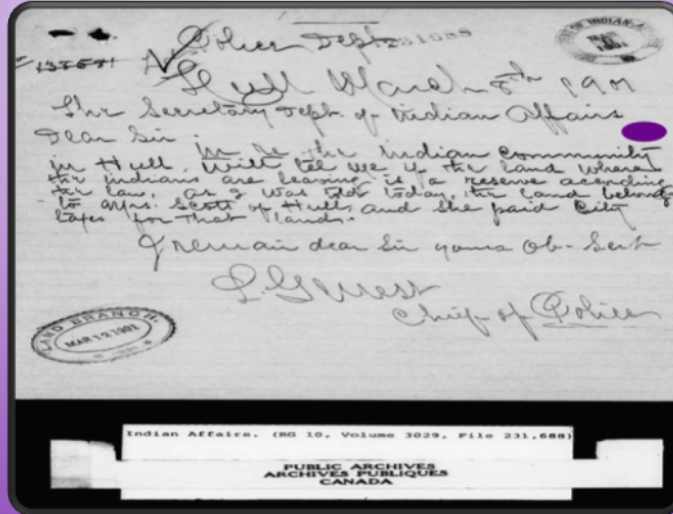 Police Dept
231088
138571
Hull March 8th 1901
The Secretary Dept. of Indian Affairs
Dear Sir
In re the indian community
in Hull. Will tell me if the land where
the indians are leaving is a reserve according
the law, as I was told today, the land belong
to Mrs. Scott of Hull, and she paid City
taxes for that land.
I remain dear Sir yours Ob. Sert
Chief of Police
LAND BRANCH.
MAR 12 1901
Indian Affairs. (RG 10, Volume 3029, File 231,688)
PUBLIC ARCHIVES
ARCHIVES PUBLIQUES
CANADA